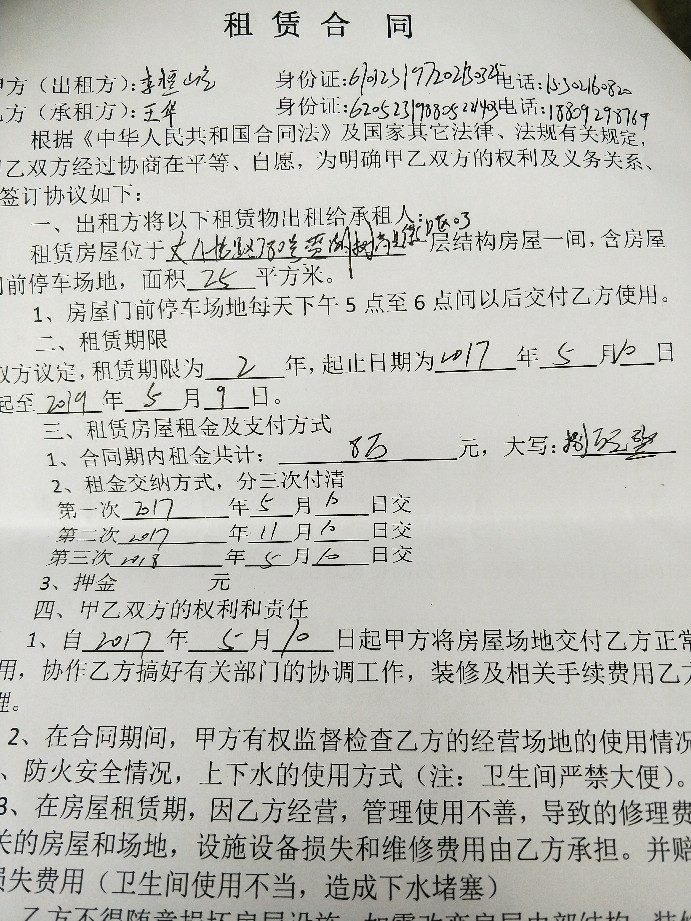 租赁合同
甲方（出租方）： 身份证: 电话:
乙方（承租方）：王华 身份证: 电话:18809298769
根据《中华人民共和国合同法》及国家其它法律、法规有关规定，
甲乙双方经过协商在平等、自愿，为明确甲乙双方的权利及义务关系、
签订协议如下：
一、出租方将以下租赁物出租给承租人：
租赁房屋位于 层结构房屋一间，含房屋
门前停车场地，面积 25 平方米。
1、房屋门前停车场地每天下午5点至6点间以后交付乙方使用。
二、租赁期限
双方议定，租赁期限为 2 年，起止日期为 2017 年 5 月 10 日
起至 2019 年 5 月 9 日。
三、租赁房屋租金及支付方式
1、合同期内租金共计： 8万 元，大写：捌万元整
2、租金交纳方式，分三次付清
第一次 2017 年 5 月 10 日交
第二次 2017 年 11 月 10 日交
第三次 2018 年 5 月 10 日交
3、押金 元
四、甲乙双方的权利和责任
1、自 2017 年 5 月 10 日起甲方将房屋场地交付乙方正常
用，协作乙方搞好有关部门的协调工作，装修及相关手续费用乙方
理。
2、在合同期间，甲方有权监督检查乙方的经营场地的使用情况
、防火安全情况，上下水的使用方式（注：卫生间严禁大便）。
3、在房屋租赁期，因乙方经营，管理使用不善，导致的修理费
关的房屋和场地，设施设备损失和维修费用由乙方承担。并赔
损失费用（卫生间使用不当，造成下水堵塞）
乙方不得随意损坏房屋设施，如需改变房屋内部结构、装修